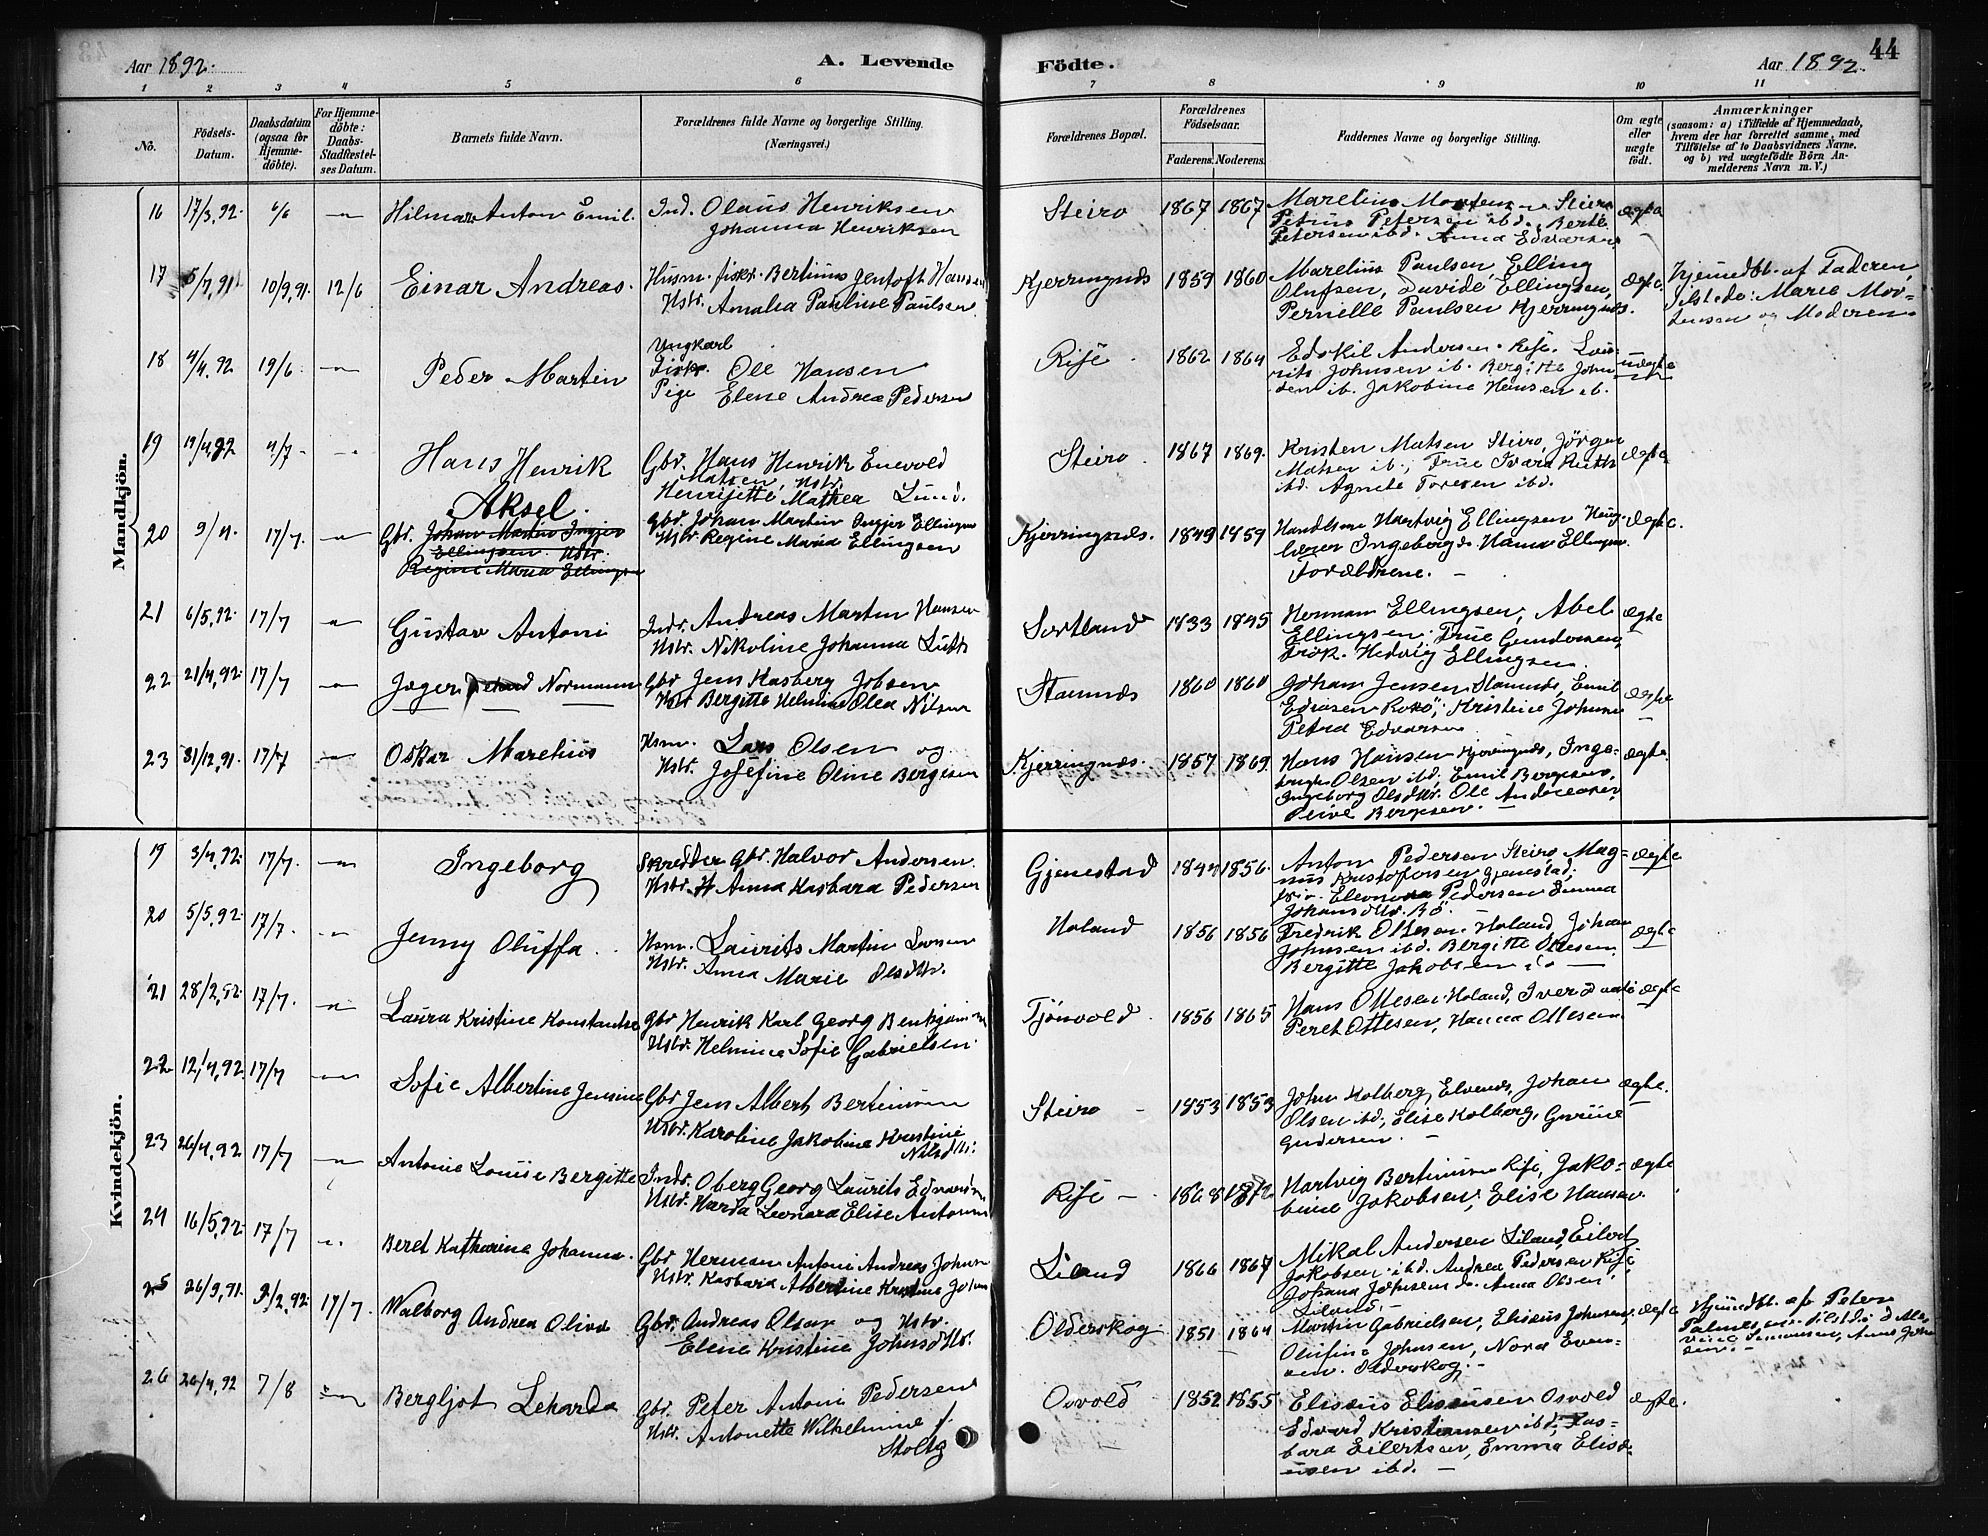 44
Aar 1892.
A. Levende
Födte.
Aar 1892.
1 2 3 4 5 6 7 8 9 10 11
No.
Födsels-
Datum.
Daabsdatum
(ogsaa for
Hjemme-
döbte).
For Hjemme-
döbte:
Daabs-
Stadfæstel-
ses Datum.
Barnets fulde Navn.
Forældrenes fulde Navne og borgerlige Stilling.
(Næringsvei.)
Forældrenes Bopæl.
Forældrenes
Födselsaar.
Faderens. Moderens.
Faddernes Navne og borgerlige Stilling.
Om ægte
eller
uægte
födt.
Anmærkninger
(saasom: a) i Tilfælde af Hjemmedaab,
hvem der har forrettet samme, med
Tilföielse af to Daabsvidners Navne,
og b) ved uægtefödte Börn An-
melderens Navn m. V.)
Mandkjön.
16 17/3,92. 6/6 Hilmar Anton Emil. Ind. Olaus Henriksen
Johanna Henriksen
Steiro 1867 1867 Marelius Mortensen Steiro
Petrus Petersen ibd. Berte
Petersen ibd. Anna Edvarsen
ægte
17 5/7,91. 10/9,91. 12/6 Einar Andreas. Husm. fisk. Bertinus Gentoft Hansen
Hstr. Amalia Pauline Paulsen
Kjerringnds 1859 1860 Marelius Paulsen, Elling
Olufsen, Davide Ellingsen,
Pernille Paulsen Kjerringnds.
ægte. Hjemdbt. af Faderen,
Tilstede: Marie Mor-
tensen og Moderen.
18 4/4,92 19/6 Peder Martin Ungkarl
Fisk. Ole Hansen
Pige Elene Andrea Pedersen
Rise 1862 1864 Edskil Andersen Rise. Lau-
rits Johnsen ib. Bergitte John
sen ib. Jakobine Hansen ib.
uægte
19 19/4,92 4/7 Hans Henrik Gbr. Hans Henrik Enevold
Matsen, Hstr.
Henrijette Mathea Lund.
Steiro. 1867 1869. Kristen Matsen Steiro, Jörgen
Matsen ib., Frue Ivara Ruth
ibd. Agnete Toresen ibd.
ægte
20 9/4. 17/7 Aksel.
Gbr. Johan Martin Ingjer
Ellingsen Hstr.
Regine Maria Ellingsen
Gbr. Johan Martin Ingjer Ellingsen
Hstr Regine Maria Ellingsen
Kjerringnds. 1849 1859 Handelsm Hartvig Ellingsen
Ingebergs Hanna Ellingsen.
Forældrene.
ægte.
21 6/5,92. 17/7 Gustav Antoni Indr. Andreas Martin Hansen
Hstr. Nikoline Johanna
Sortland 1833 1845 Herman Ellingsen, Abel
Ellingsen, Frue Gundersen,
Frök. Hedvig Ellingsen.
ægte
22 21/4,92. 17/7 Jæger Normann Gbr Jens Kasberg Jobsen
Hstr Bergitte Helmine Olea Nilsen
Stamnds 1860 1860 Johan Jensen Stamnds, Emil
Edvasen, Kristine Johnsen
Petra Edvarsen
ægte
23 31/12,91. 17/7 Oskar Marelius Hsm. Lars Olsen og
Hstr. Josefine Oline Bergesen
Kjerringnds. 1857 1869 Hans Hansen Kjerringnds, Inge-
Olsen ibd, Emil Bergesen,
Ingeborg Olsdttr. Ole Andreasen,
Olive Bergesen.
ægte.
Kvindekjön.
19 3/4,92. 17/7. Ingeborg Skredder Gbr. Halvor Andersen
Hstr. Anna Kasbara Pedersen
Gjenestad 1844 1856. Anton Pedersen Steiro Mag-
nus Kristofersen Gjenestad,
Eleonora Pedersen Emma
Johansdttr. Bö.
ægte
20 5/5,92. 17/7. Jenny Oluffa. Hsm. Laurits Martin Larsen
Hstr. Anna Marie Olsdttr.
Holand 1856 1856 Fredrik Ottesen Holand, Johan
Johnsen ibd. Bergitte Ottesen
Bergitte Jakobsen
ægte
21 28/2,92. 17/7. Laura Kristine Konstanse Gbr Henrik Karl Georg Benkjamin
Hstr. Helmine Sofie Gabrielsen.
Tjönvold. 1856 1865 Hans Ottesen Holand, Iver
Peret Ottesen, Hanna Ottesen
ægte
22 12/4,92. 17/7 Sofie Albertine Jensine Gbr Jens Albert Bertinusen
Hstr. Karoline Jakobine Kristine
Nilsdttr.
Steiro 1853 1853 John Kolberg, Elvends, Johan
Olsen ibd, Elise Kolberg, Gurine
Gudersen.
ægte.
23 26/4,92 17/7 Antonie Louise Bergitte Indr. Oberg Georg Laurits Edvardsen
Hstr. Harda Leonara Elise Antonsen
Rise 1868 1872 Hartvig Bertinusen Rise, Jako-
bine Jakobsen, Elise Hansen.
ægte
24 16/5,92 17/7 Beret Katharina Johanna. Gbr Herman Antoni Andreas Johnsen
Hstr. Kasbara Albertine Kristine Johnsen
Liland 1866 1867 Mikal Andersen Liland, Eilert
Jakobsen ibd. Andrea Pedersen Rise
Johana Johnsen do. Anna Olsen
Liland.
25 26/9,91. 9/2,92. 17/7. Walborg Andrea Olive Gbr. Andreas Olsen og Hstr.
Elene Kristine Johnsdttr.
Olderskog. 1851 1864 Martin Gabrielsen, Eliseus Johnsen,
Olufine Johnsen, Nora Even-
sen. Olderskog.
ægte Hjemdbt. af Peter
Simonsen, Anne John
sen.
26 26/4,92 7/8 Bergljot Leharda Gbr. Peter Antoni Pedersen
Hstr. Antonette Wilhelmine f.
Stoltz
Osvold 1852 1855 Eliseus Eliseusen Osvold
Edvard Kristiansen ibd, Kas-
bara Eilertsen, Emma Elise-
usen ibd.
ægte.